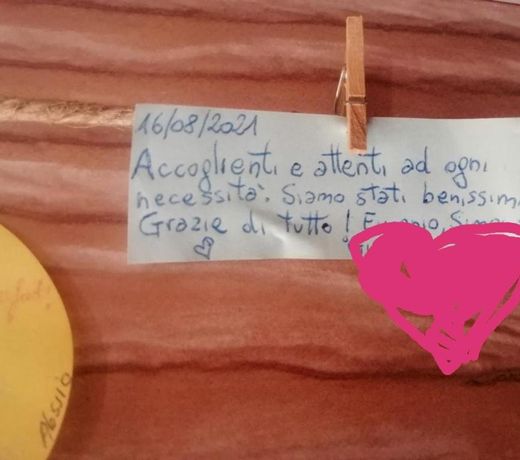 16/08/2021
Accoglienti e attenti ad ogni
necessità. Siamo stati benissim
Grazie di tutto!
Alessio